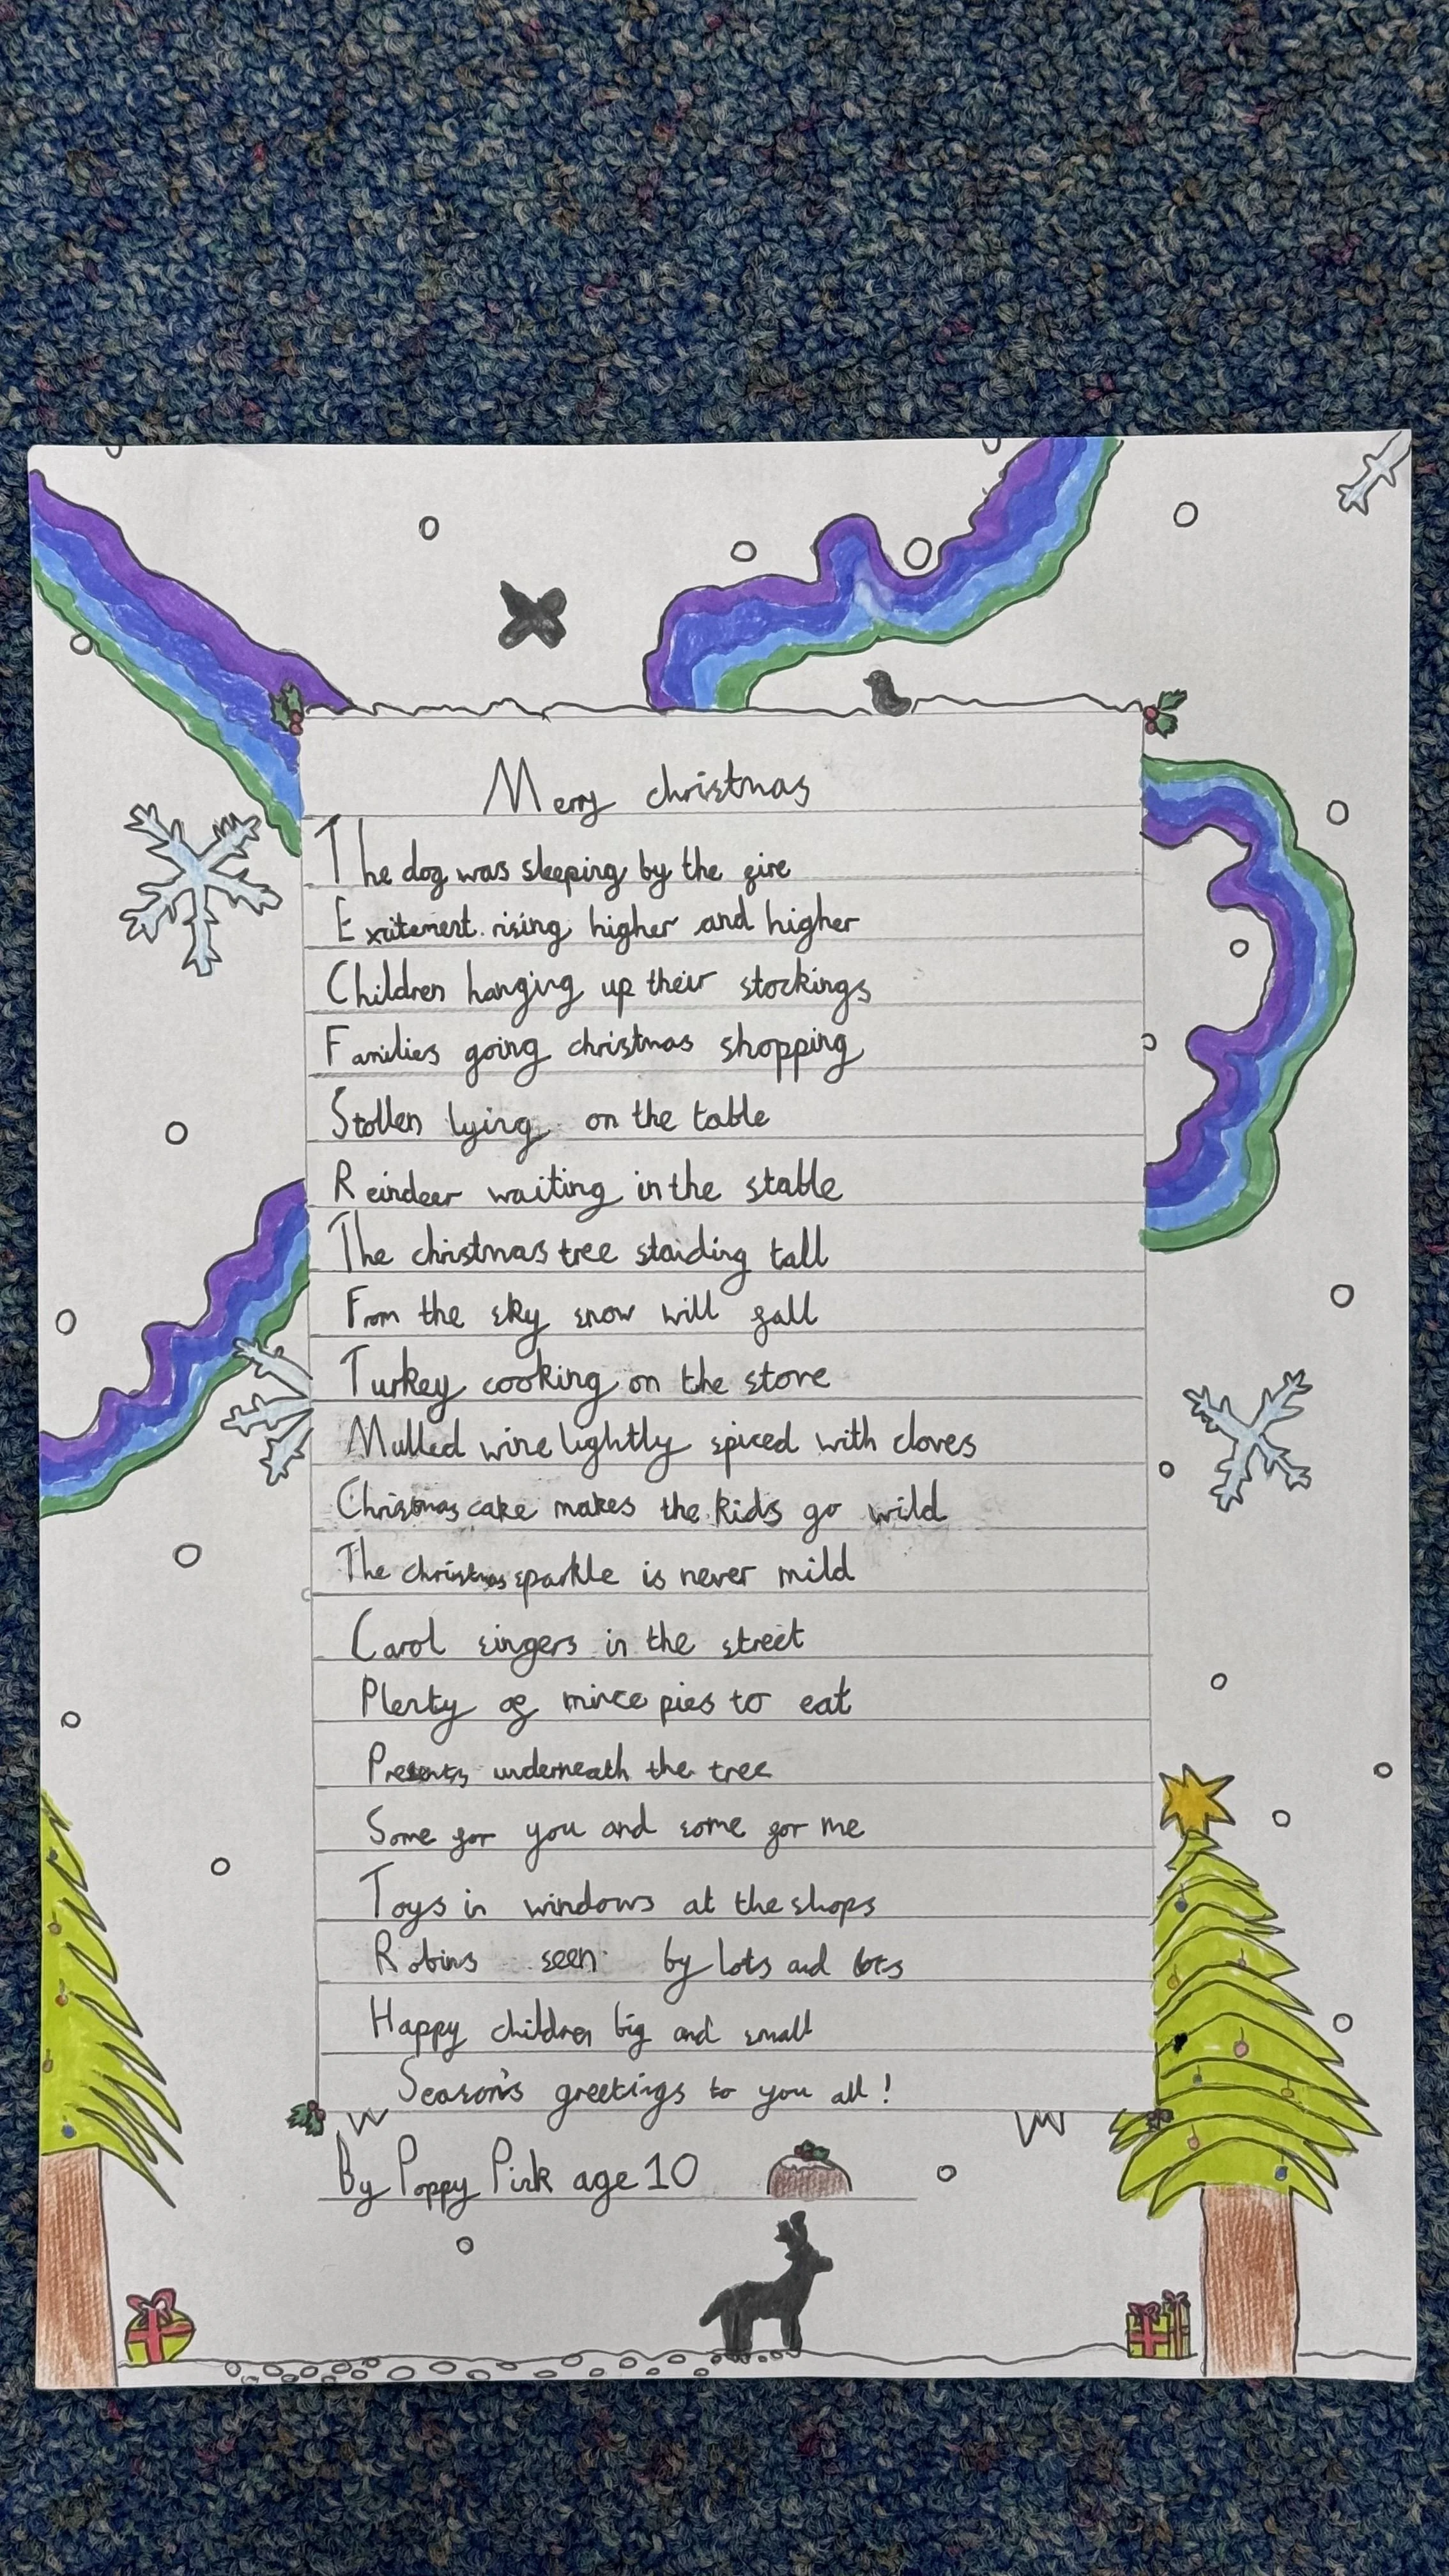 Merry christmas
The dog was sleeping by the fire
Excitement rising higher and higher
Children hanging up their stockings
Families going christmas shopping
Stollen lying on the table
Reindeer waiting in the stable
The christmas tree standing tall
From the sky snow will fall
Turkey cooking on the stove
Mulled wine lightly spiced with cloves
Christmas cake makes the kids go wild
The christmas sparkle is never mild
Carol singers in the street
Plenty of mince pies to eat
Presents underneath the tree
Some for you and some for me
Toys in windows at the shops
Robins seen by lots and lots
Happy children big and small
Season's greetings to you all!
By Poppy Pink age 10